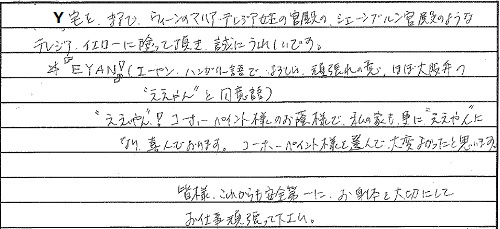 Y宅を、まるで、ウィーンのマリア・テレジア女王の宮殿の、シェーンブルン宮殿のような
テレジア・イエローに塗って頂き、誠にうれしいです。
"EYAN!"(エーヤン、ハンガリー語で、よろしい、頑張れの意、ほぼ大阪弁の
"ええやん"と同意語)
"ええやん"!コーホーペイント様のお蔭様で、私の家も、更に"ええやん"に
なり、喜んでおります。コーホーペイント様を選んで、大変よかったと思います。
皆様、これからも安全第一に、お身体を大切にして
お仕事頑張って下さい。